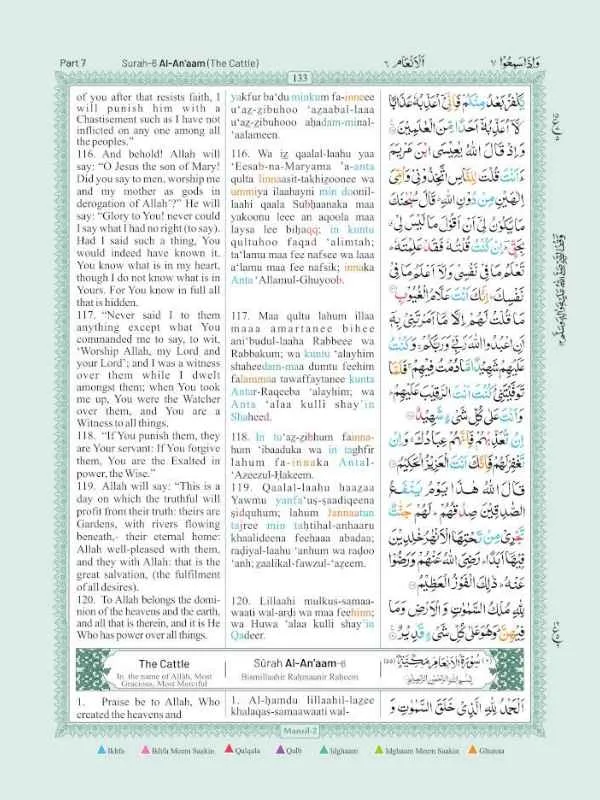 Part 7
Surah-6 Al-An'aam (The Cattle)
اَلْاَنْعَام ٦
وَاِذَا سَمِعُوْا ٧
133
of you after that resists faith, I
will punish him with a
Chastisement such as I have not
inflicted on any one among all
the peoples.”
116. And behold! Allah will
say: “O Jesus the son of Mary!
Did you say to men, worship me
and my mother as gods in
derogation of Allah'?” He will
say: “Glory to You! never could
I say what I had no right (to say).
Had I said such a thing, You
would indeed have known it.
You know what is in my heart,
though I do not know what is in
Yours. For You know in full all
that is hidden.
117. “Never said I to them
anything except what You
commanded me to say, to wit,
‘Worship Allah, my Lord and
your Lord’; and I was a witness
over them while I dwelt
amongst them; when You took
me up, You were the Watcher
over them, and You are a
Witness to all things.
118. “If You punish them, they
are Your servant: If You forgive
them, You are the Exalted in
power, the Wise.”
119. Allah will say: “This is a
day on which the truthful will
profit from their truth: theirs are
Gardens, with rivers flowing
beneath,- their eternal home:
Allah well-pleased with them,
and they with Allah: that is the
great salvation, (the fulfilment
of all desires).
120. To Allah belongs the domi-
nion of the heavens and the earth,
and all that is therein, and it is He
Who has power over all things.
yakfur ba‘du minkum fa-inneee
u‘az-zibuhoo ‘azaabal-laaa
u‘az-zibuhooo aḥadam-minal-
‘aalameen.
116. Wa iz qaalal-laahu yaa
‘Eesab-na-Maryama ’a-anta
qulta linnaasit-takhizoonee wa
ummiya ilaahayni min doonil-
laahi qaala Subḥaanaka maa
yakoonu leee an aqoola maa
laysa lee biḥaqq; in kuntu
qultuhoo faqad ‘alimtah;
ta‘lamu maa fee nafsee wa laaa
a‘lamu maa fee nafsik; innaka
Anta ‘Allaamul-Ghuyoob.
117. Maa qultu lahum illaa
maaa amartanee bihee
ani‘budul-laaha Rabbeee wa
Rabbakum; wa kuntu ‘alayhim
shaheedam-maa dumtu feehim
falammaa tawaffaytanee kunta
Antar-Raqeeba ‘alayhim; wa
Anta ‘alaa kulli shay’in
Shaheed.
118. In tu‘az-zibhum fainna-
hum ‘ibaaduka wa in taghfir
lahum fa-innaka Antal-
‘Azeezul-Ḥakeem.
119. Qaalal-laahu haazaa
Yawmu yanfa‘uṣ-ṣaadiqeena
ṣidquhum; lahum Jannaatun
tajree min taḥtihal-anhaaru
khaalideena feehaaa abadaa;
raḍiyal-laahu ‘anhum wa raḍoo
‘anh; zaalikal-fawzul-‘aẓeem.
120. Lillaahi mulkus-samaa-
waati wal-arḍi wa maa feehinn;
wa Huwa ‘alaa kulli shay’in
Qadeer.
يَكْفُرْ بَعْدُ مِنْكُمْ فَاِنِّىْٓ اُعَذِّبُهٗ عَذَابًا
لَّاۤ اُعَذِّبُهٗۤ اَحَدًا مِّنَ الْعٰلَمِيْنَ
وَاِذْ قَالَ اللّٰهُ يٰعِيْسَى ابْنَ مَرْيَمَ
ءَاَنْتَ قُلْتَ لِلنَّاسِ اتَّخِذُوْنِىْ وَاُمِّىَ
اِلٰهَيْنِ مِنْ دُوْنِ اللّٰهِ قَالَ سُبْحٰنَكَ
مَا يَكُوْنُ لِىْٓ اَنْ اَقُوْلَ مَا لَيْسَ لِىْ
بِحَقٍّ اِنْ كُنْتُ قُلْتُهٗ فَقَدْ عَلِمْتَهٗ
تَعْلَمُ مَا فِىْ نَفْسِىْ وَلَاۤ اَعْلَمُ مَا فِىْ
نَفْسِكَ اِنَّكَ اَنْتَ عَلَّامُ الْغُيُوْبِ
مَا قُلْتُ لَهُمْ اِلَّا مَاۤ اَمَرْتَنِىْ بِهٖۤ
اَنِ اعْبُدُوا اللّٰهَ رَبِّىْ وَرَبَّكُمْ وَكُنْتُ
عَلَيْهِمْ شَهِيْدًا مَّا دُمْتُ فِيْهِمْ فَلَمَّا
تَوَفَّيْتَنِىْ كُنْتَ اَنْتَ الرَّقِيْبَ عَلَيْهِمْ
وَاَنْتَ عَلٰى كُلِّ شَىْءٍ شَهِيْدٌ
اِنْ تُعَذِّبْهُمْ فَاِنَّهُمْ عِبَادُكَ وَاِنْ
تَغْفِرْ لَهُمْ فَاِنَّكَ اَنْتَ الْعَزِيْزُ الْحَكِيْمُ
قَالَ اللّٰهُ هٰذَا يَوْمُ يَنْفَعُ
الصّٰدِقِيْنَ صِدْقُهُمْ لَهُمْ جَنّٰتٌ
تَجْرِىْ مِنْ تَحْتِهَا الْاَنْهٰرُ خٰلِدِيْنَ
فِيْهَاۤ اَبَدًا رَضِىَ اللّٰهُ عَنْهُمْ وَرَضُوْا
عَنْهُ ذٰلِكَ الْفَوْزُ الْعَظِيْمُ
لِلّٰهِ مُلْكُ السَّمٰوٰتِ وَالْاَرْضِ وَمَا
فِيْهِنَّ وَهُوَ عَلٰى كُلِّ شَىْءٍ قَدِيْرٌ
The Cattle
In the name of Allâh, Most
Gracious, Most Merciful
Sûrah Al-An'aam-6
Bismillaahir Raḥmaanir Raḥeem
(٦) سُوْرَةُ الْاَنْعَامِ مَكِّيَّةٌ (٥٥)
بِسْمِ اللّٰهِ الرَّحْمٰنِ الرَّحِيْمِ
1. Praise be to Allah, Who
created the heavens and
1. Al-ḥamdu lillaahil-lazee
khalaqas-samaawaati wal-
اَلْحَمْدُ لِلّٰهِ الَّذِىْ خَلَقَ السَّمٰوٰتِ وَ
Manzil-2
Ikhfa
Ikhfa Meem Saakin
Qalqala
Qalb
Idghaam
Idghaam Meem Saakin
Ghunna